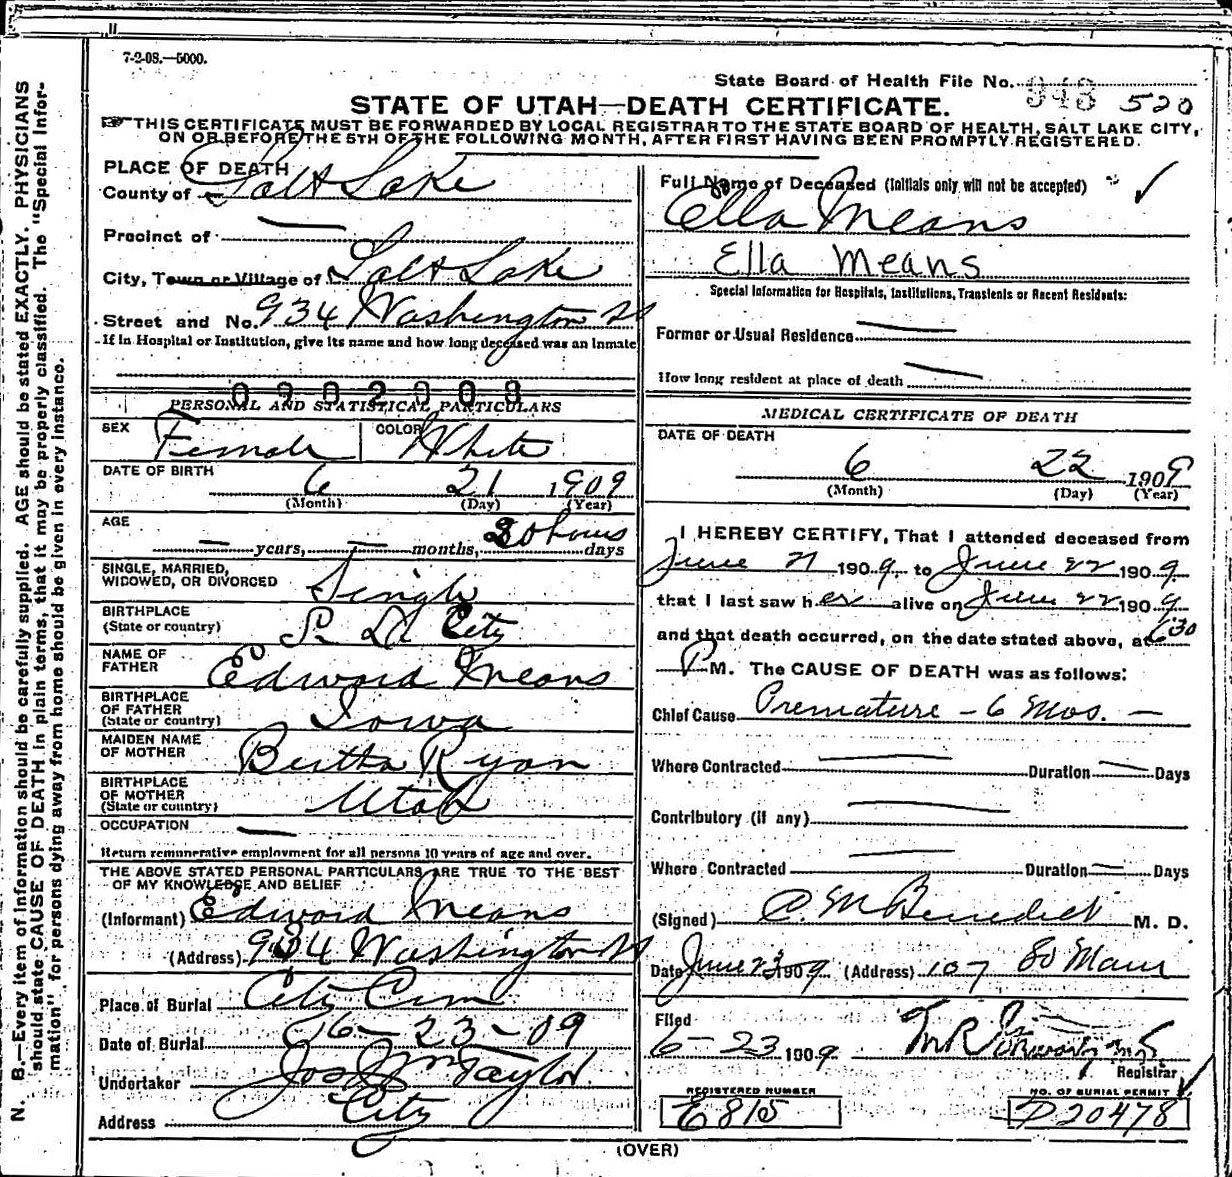 7-2-08.—5000.
State Board of Health File No. 948 520
STATE OF UTAH—DEATH CERTIFICATE.
THIS CERTIFICATE MUST BE FORWARDED BY LOCAL REGISTRAR TO THE STATE BOARD OF HEALTH, SALT LAKE CITY,
ON OR BEFORE THE 5TH OF THE FOLLOWING MONTH, AFTER FIRST HAVING BEEN PROMPTLY REGISTERED.
N. B.—Every item of information should be carefully supplied. AGE should be stated EXACTLY. PHYSICIANS
should state CAUSE OF DEATH in plain terms, that it may be properly classified. The "Special Infor-
mation" for persons dying away from home should be given in every instance.
PLACE OF DEATH
County of Salt Lake
Precinct of
City, Town or Village of Salt Lake
Street and No. 934 Washington St
If in Hospital or Institution, give its name and how long deceased was an inmate
0902008
PERSONAL AND STATISTICAL PARTICULARS
SEX Female COLOR White
DATE OF BIRTH
6 21 1909
(Month) (Day) (Year)
AGE
— years, — months, 30 hours days
SINGLE, MARRIED,
WIDOWED, OR DIVORCED Single
BIRTHPLACE
(State or country) S. L. City
NAME OF
FATHER Edward Means
BIRTHPLACE
OF FATHER
(State or country) Iowa
MAIDEN NAME
OF MOTHER Bertha Ryan
BIRTHPLACE
OF MOTHER
(State or country) Utah
OCCUPATION —
Return remunerative employment for all persons 10 years of age and over.
THE ABOVE STATED PERSONAL PARTICULARS ARE TRUE TO THE BEST
OF MY KNOWLEDGE AND BELIEF
(Informant) Edward Means
(Address) 934 Washington St
Place of Burial City Cem
Date of Burial 6-23-09
Undertaker Jos Wm Taylor
Address City
Full Name of Deceased (Initials only will not be accepted)
Ella Means
Ella Means
Special Information for Hospitals, Institutions, Transients or Recent Residents:
Former or Usual Residence
How long resident at place of death
MEDICAL CERTIFICATE OF DEATH
DATE OF DEATH
6 22 1909
(Month) (Day) (Year)
I HEREBY CERTIFY, That I attended deceased from
June 21 1909 to June 22 1909
that I last saw her alive on June 22 1909
and that death occurred, on the date stated above, at 6 30
P M. The CAUSE OF DEATH was as follows:
Chief Cause Premature - 6 Mos. —
Where Contracted — Duration — Days
Contributory (if any) —
Where Contracted — Duration — Days
(Signed) C. M. Benedict M. D.
Date June 23 1909 (Address) 107 So Main
Filed
6-23 1909
Registrar
REGISTERED NUMBER
E815
NO. OF BURIAL PERMIT
D20478
(OVER)